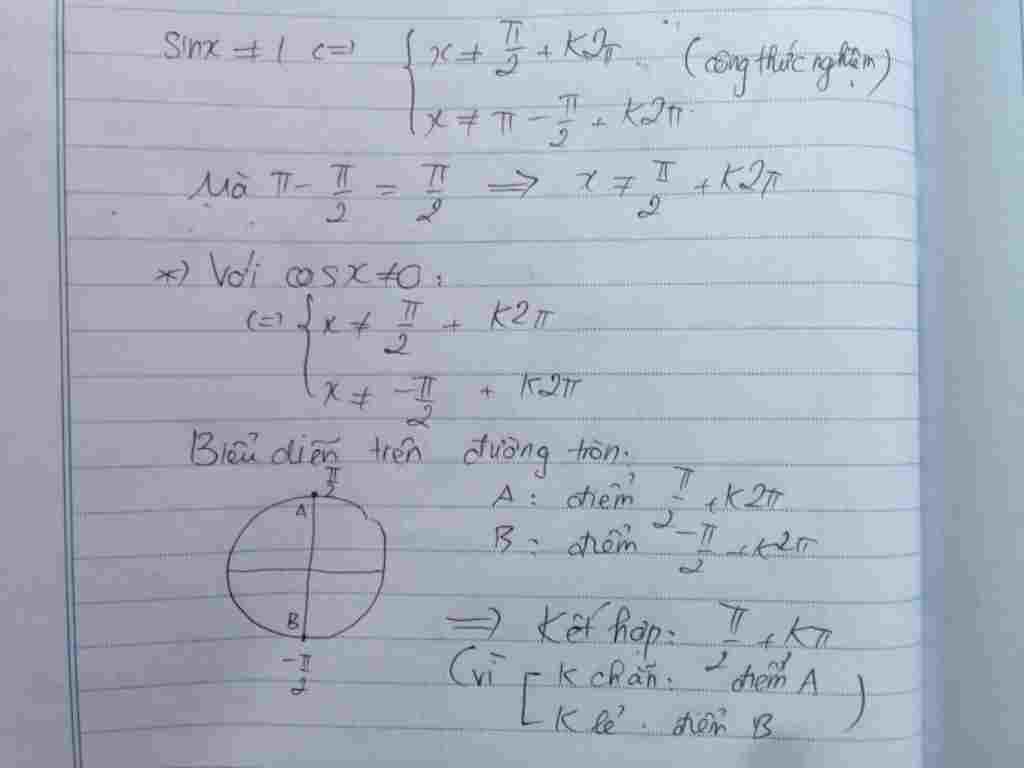 Sinx ≠ 1 <=> { x ≠ π/2 + K2π (công thức nghiệm)
x ≠ π - π/2 + K2π
Mà π - π/2 = π/2 => x ≠ π/2 + K2π
*) Với cosx ≠ 0:
<=> { x ≠ π/2 + K2π
x ≠ -π/2 + K2π
Biểu diễn trên đường tròn.
π/2
A
A: điểm π/2 + K2π
B: điểm -π/2 + K2π
B
-π/2
=> Kết hợp: π/2 + Kπ
(vì [ K chẵn: điểm A
K lẻ: điểm B )